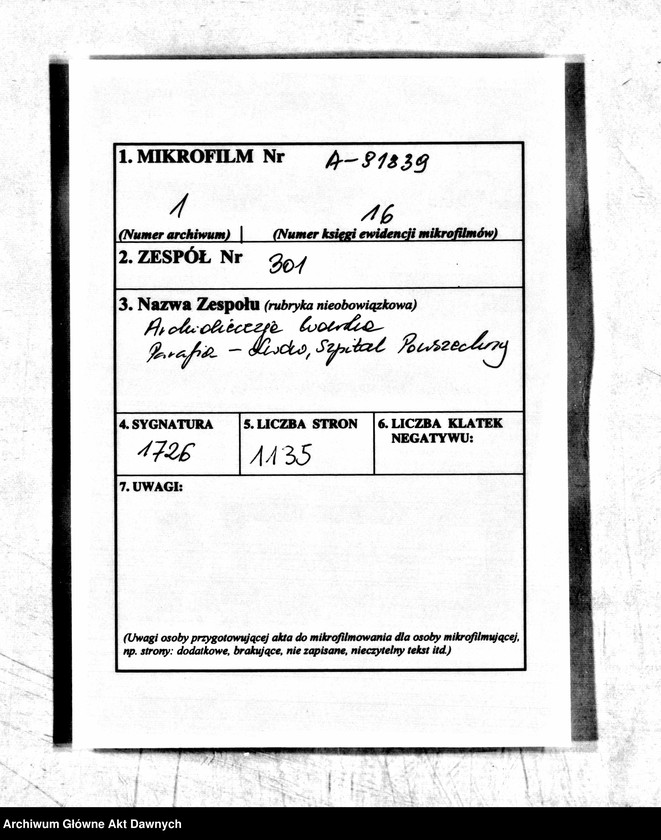 1. MIKROFILM Nr A-81839
1 16
(Numer archiwum) (Numer księgi ewidencji mikrofilmów)
2. ZESPÓŁ Nr 301
3. Nazwa Zespołu (rubryka nieobowiązkowa)
Archidiecezja Lwowska
Parafia – Lwów, Szpital Powszechny
4. SYGNATURA 5. LICZBA STRON 6. LICZBA KLATEK
NEGATYWU:
1726 1135
7. UWAGI:
(Uwagi osoby przygotowującej akta do mikrofilmowania dla osoby mikrofilmującej,
np. strony: dodatkowe, brakujące, nie zapisane, nieczytelny tekst itd.)
Archiwum Główne Akt Dawnych